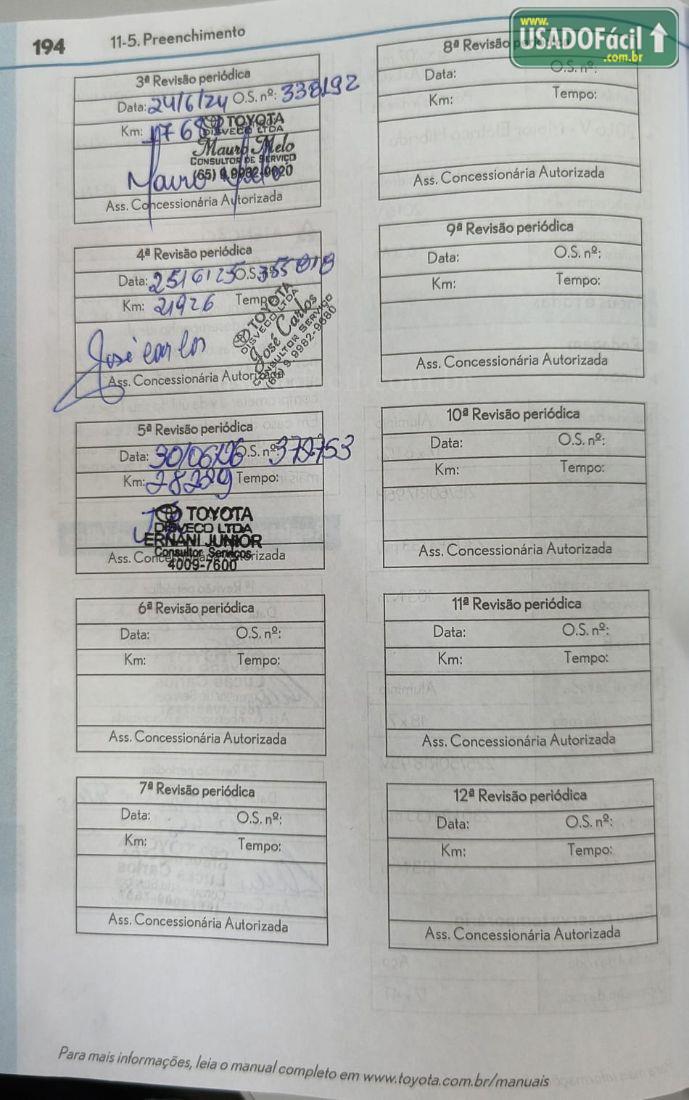 194
11-5. Preenchimento
www.
USADOFácil
.com.br
3ª Revisão periódica
Data: 24/6/24 O.S. nº: 338192
Km:
TOYOTA
DISVECO LTDA
Mauro Melo
CONSULTOR DE SERVIÇO
(65) 9.9982-9020
Mauro Melo
Ass. Concessionária Autorizada
4ª Revisão periódica
Data: 25/6/25 O.S. nº: 355818
Km: 21926 Tempo:
TOYOTA
DISVECO LTDA
José Carlos
CONSULTOR SERVIÇO
(65) 9.9982-9680
José Carlos
Ass. Concessionária Autorizada
5ª Revisão periódica
Data: 30/06/26 O.S. nº: 372753
Km: 28229 Tempo:
TOYOTA
DISVECO LTDA
ERNANI JUNIOR
Consultor Serviços
4009-7600
Ass. Concessionária Autorizada
6ª Revisão periódica
Data: O.S. nº:
Km: Tempo:
Ass. Concessionária Autorizada
7ª Revisão periódica
Data: O.S. nº:
Km: Tempo:
Ass. Concessionária Autorizada
8ª Revisão
Data: O.S. nº:
Km: Tempo:
Ass. Concessionária Autorizada
9ª Revisão periódica
Data: O.S. nº:
Km: Tempo:
Ass. Concessionária Autorizada
10ª Revisão periódica
Data: O.S. nº:
Km: Tempo:
Ass. Concessionária Autorizada
11ª Revisão periódica
Data: O.S. nº:
Km: Tempo:
Ass. Concessionária Autorizada
12ª Revisão periódica
Data: O.S. nº:
Km: Tempo:
Ass. Concessionária Autorizada
Para mais informações, leia o manual completo em www.toyota.com.br/manuais